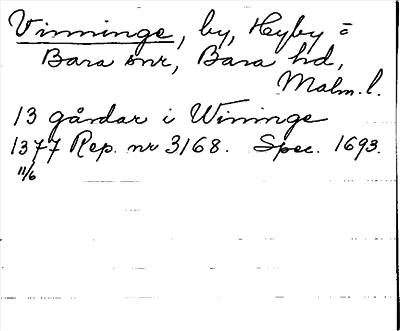 Vinninge, by, Hyby =
Bara snr, Bara hd,
Malm. l.
13 gårdar i Wininge
1377 Rep. nr 3168. Spec. 1693.
11/6